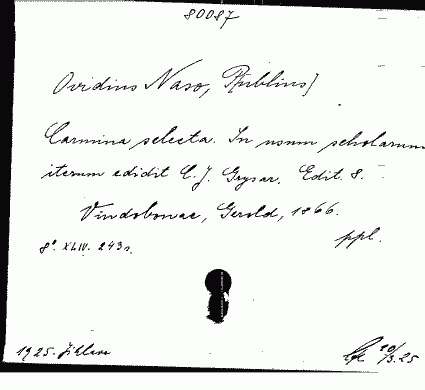 80087
Ovidius Naso, P[ublius]
Carmina selecta. In usum scholarum
iterum edidit C. J. Grysar. Edit. 8.
Vindobonae, Gerold, 1866.
ppl.
8°. XLIV. 243 s.
1925. Jihlava 20/3.25